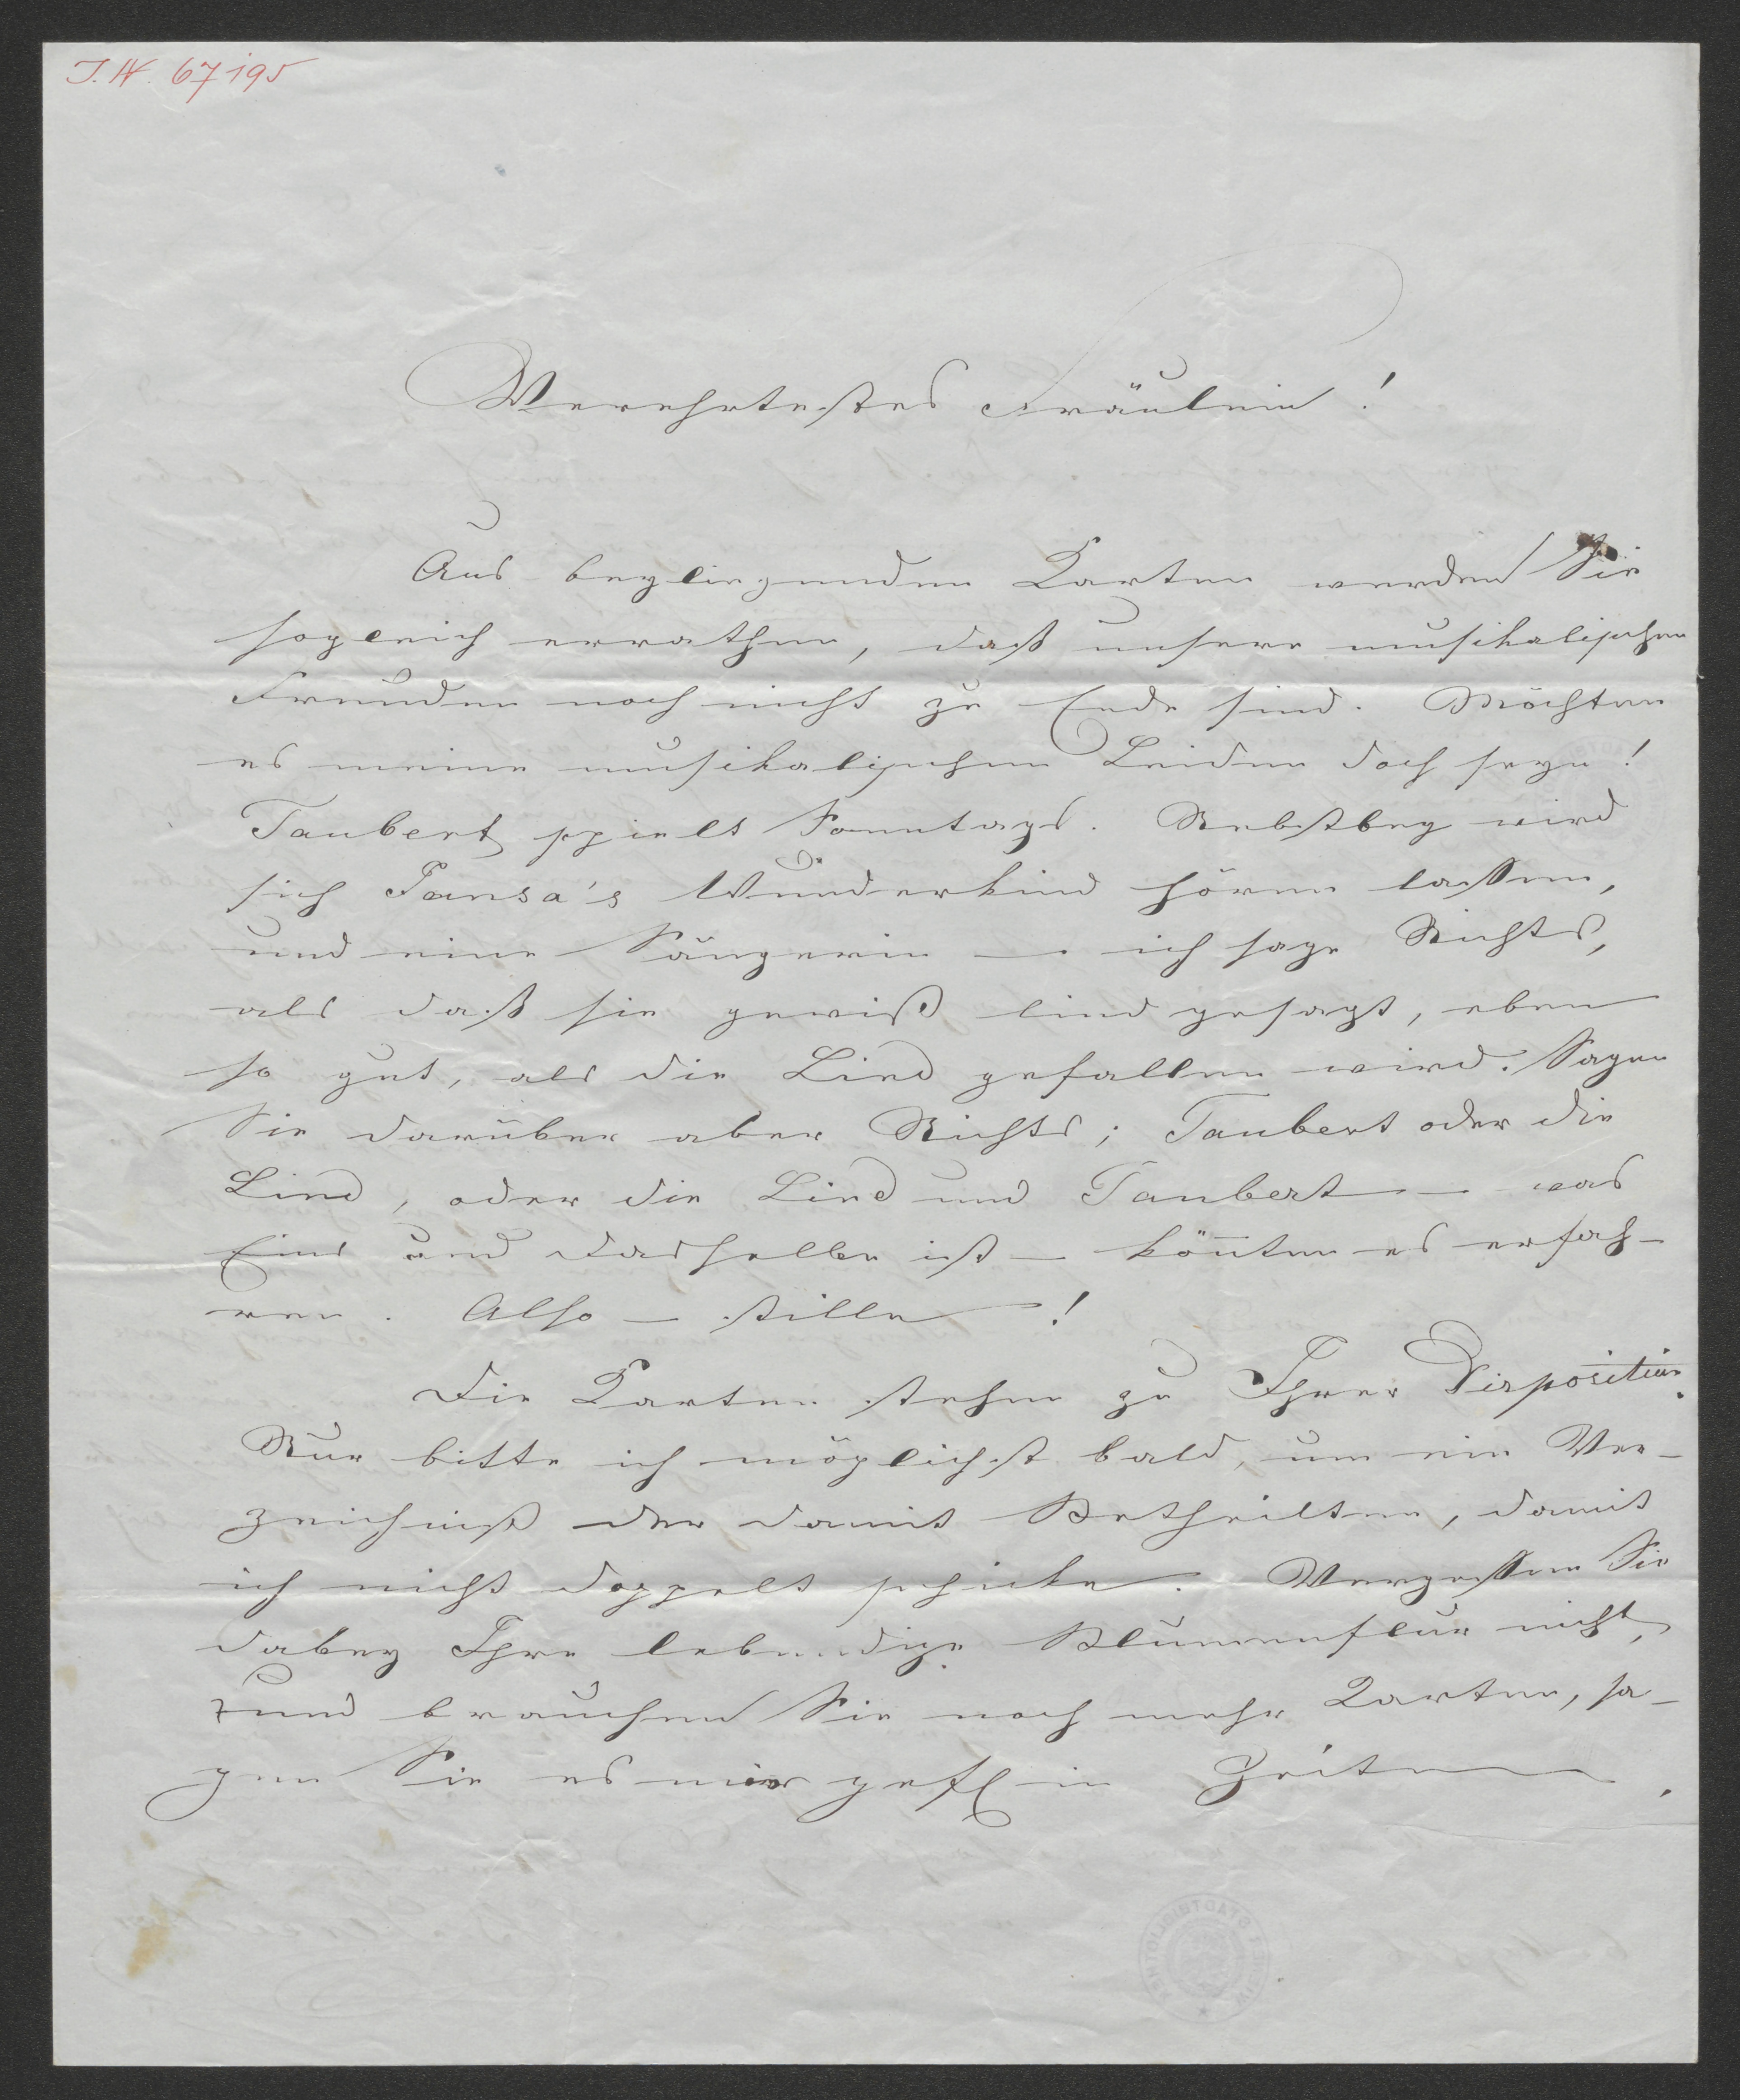 J.N. 67195
Verehrtestes Fräulein!
Aus beyliegenden Karten werden Sie
sogleich errathen, daß unsere musikalischen
Freuden noch nicht zu Ende sind. Möchten
es meine musikalischen Leiden doch seyn!
Taubert spielt Sonntags. Nebstbey wird
sich Pansa's Wunderkind hören lassen,
und eine Sängerin — ich sage Nichts,
als daß sie gewiß lind gesagt, eben
so gut, als die Lind gefallen wird. Sagen
Sie darüber aber Nichts; Taubert oder die
Lind, oder die Lind und Taubert — was
Eins und dasselbe ist — könnten es erfah-
ren. Also — stille!
Die Karten stehen zu Ihrer Disposition.
Nur bitte ich möglichst bald, um ein Ver-
zeichniß der damit Betheilten, damit
ich nicht doppelt schicke. Vergessen Sie
dabey Ihre lebendige Blumenflur nicht,
und brauchen Sie noch mehr Karten, sa-
gen Sie es mir gefl in Zeiten.